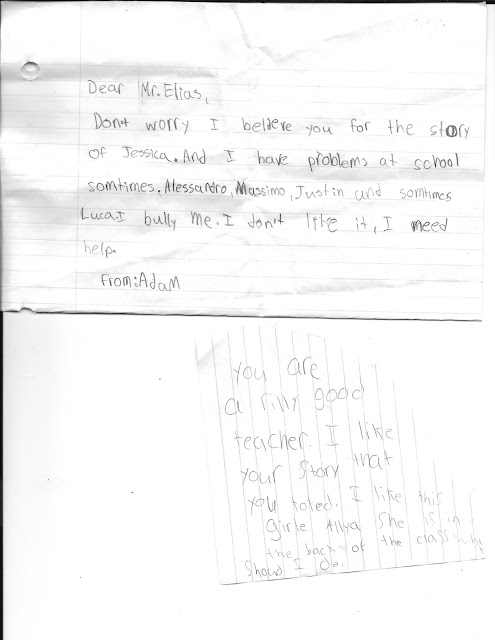 Dear Mr. Elias,
Don't worry I beleive you for the story
of Jessica. And I have problems at school
somtimes. Alessandro, Massimo, Justin and somtimes
Luca. I bully me. I don't like it, I need
help.
from: AdaM
you are
a rilly good
teacher. I like
your story that
you toled. I like this
Girle Allya She is in
the back of the class
Shoud I do.